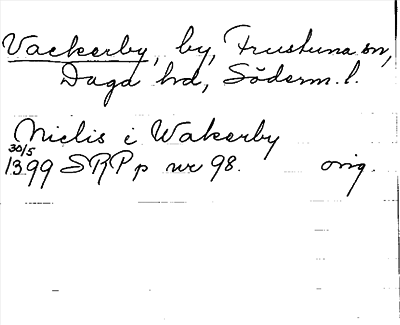 Vackerby, by, Frustuna sn,
Daga hd, Söderm. l.
Niclis i Wakerby
30/5
1399 SRPp nr 98. orig.